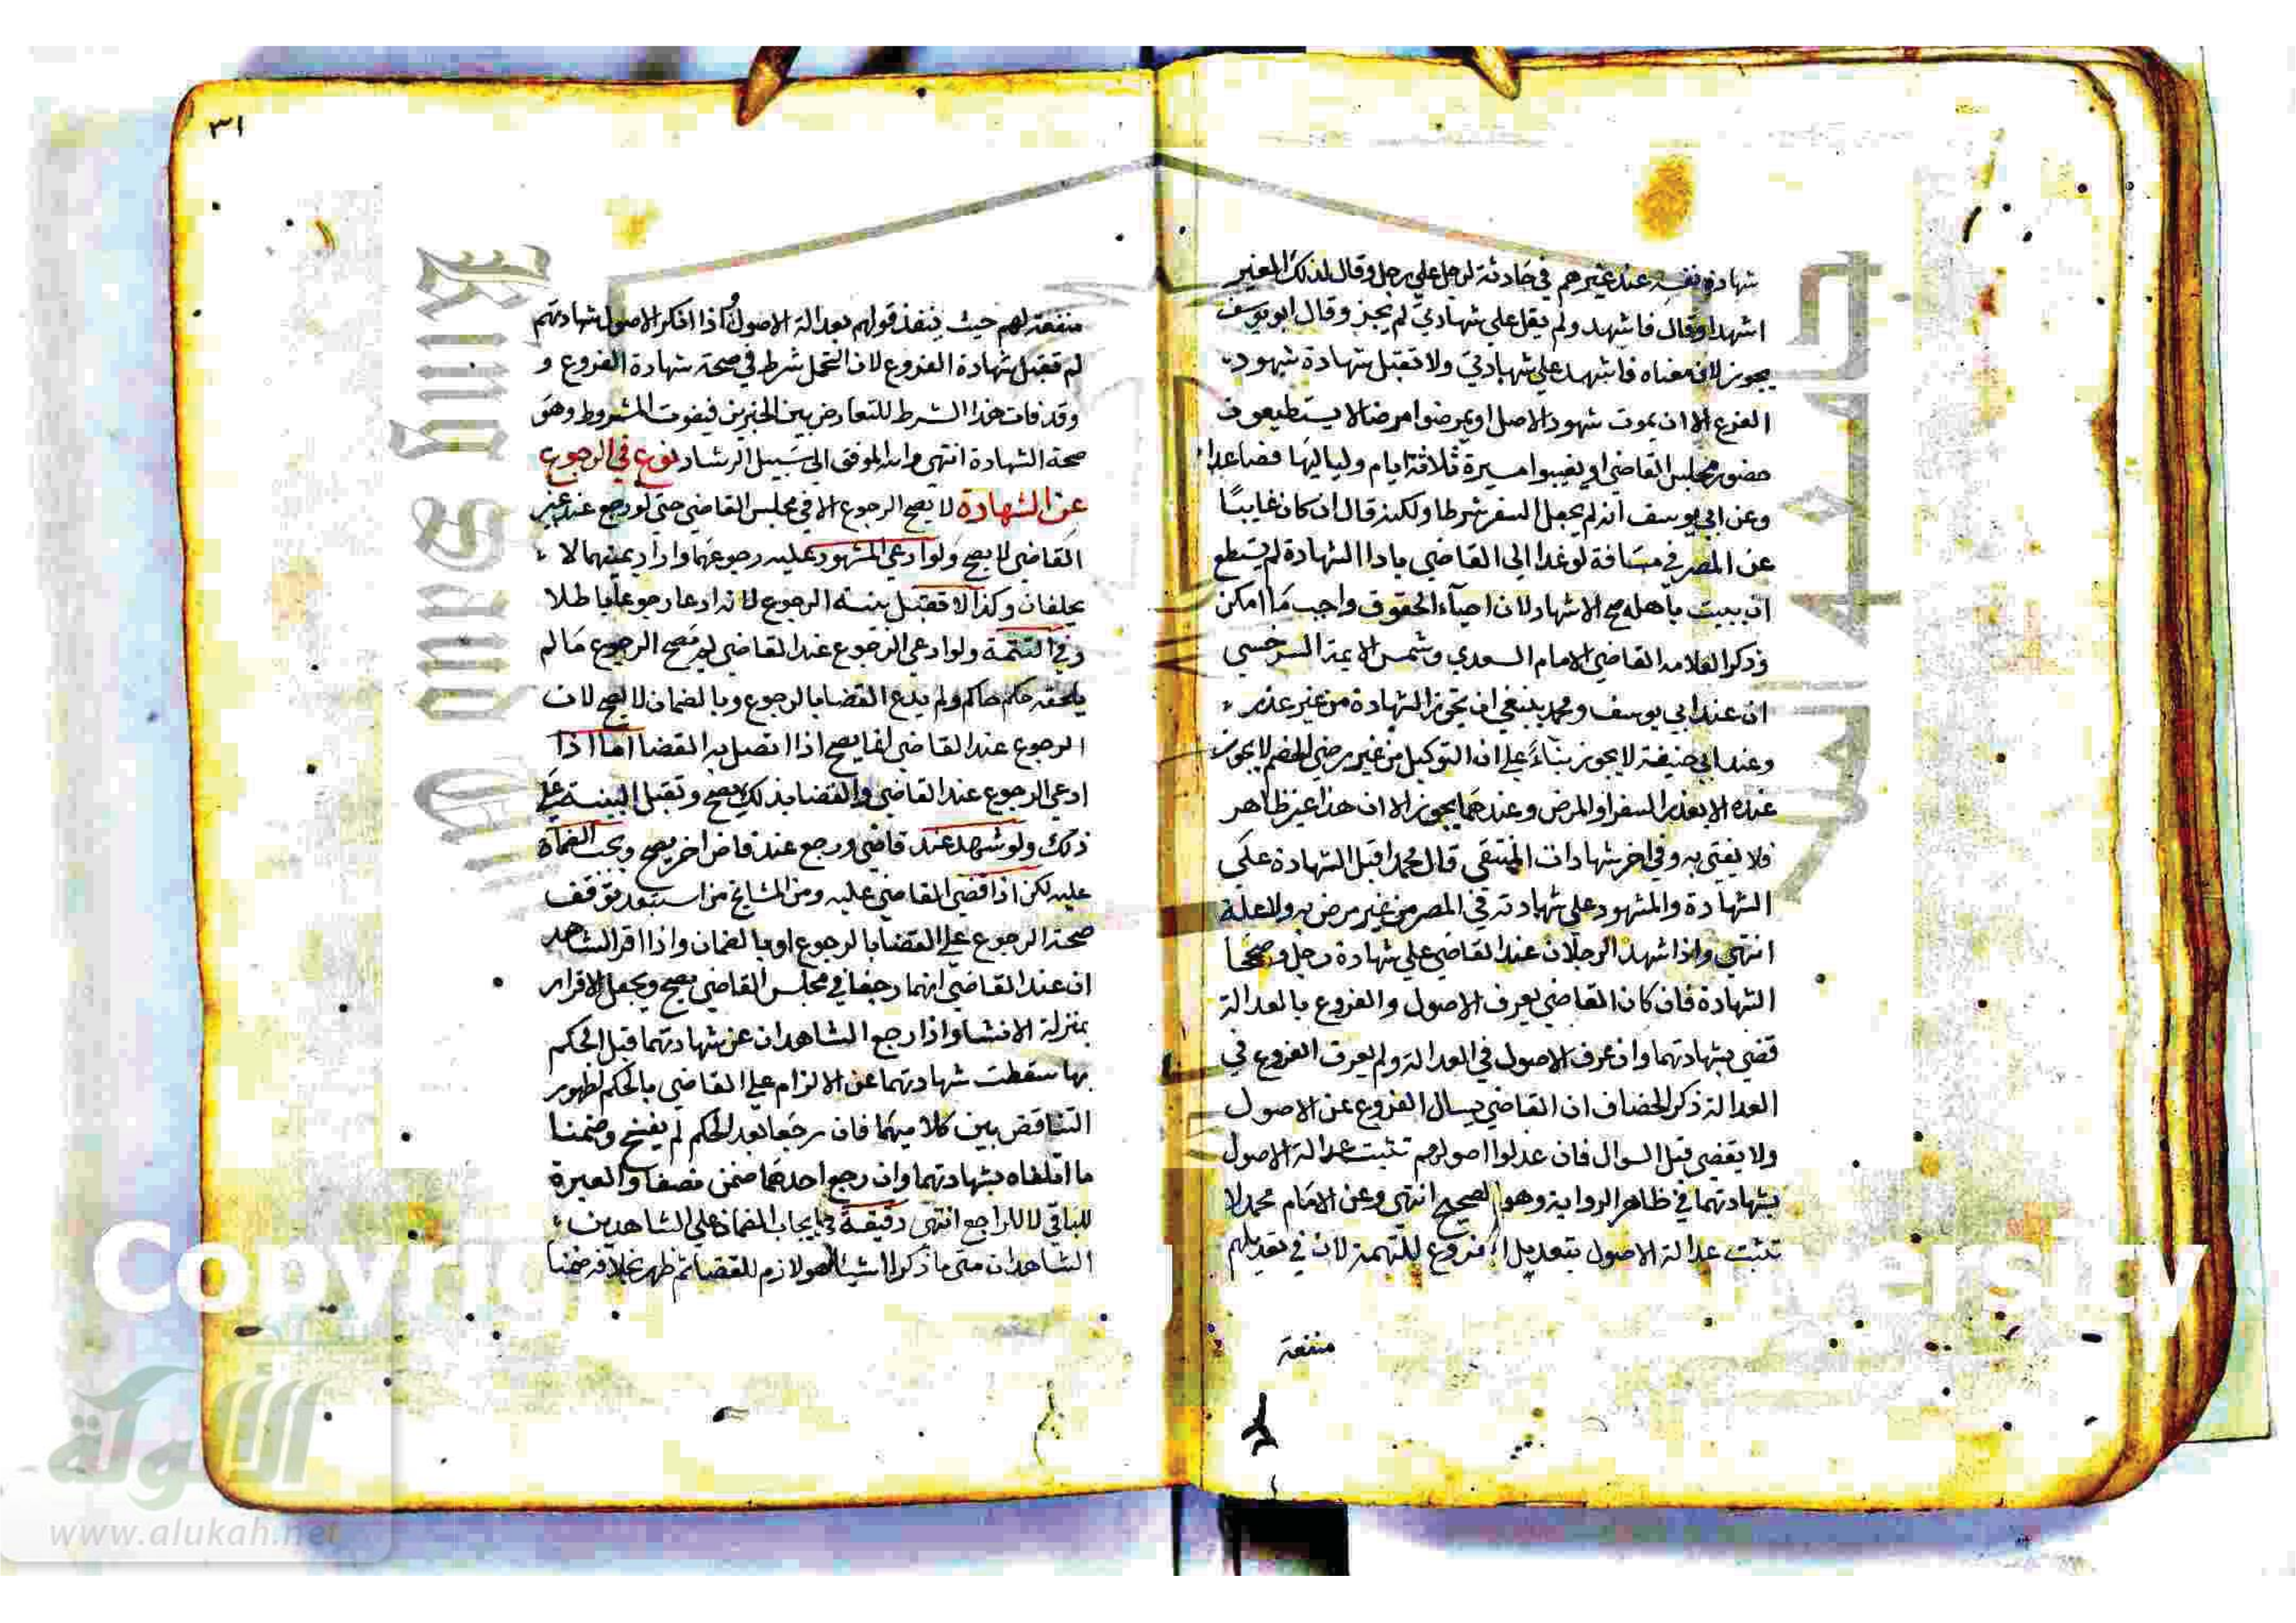 شهادة نفسه عند غيرهم في حادثة لرجل علي رجل وقال لذلك الغير
اشهد اوقال فاشهد ولم يقل علي شهادتي لم يجز وقال ابويوسف
يجوز لان معناه فاشهد علي شهادتي ولا تقبل شهادة شهود
الفرع الا ان يموت شهود الاصل او يمرضوا مرضا لا يستطيعون
حضور مجلس القاضي او يغيبوا مسيرة ثلاثة ايام ولياليها فصاعدا
وعن ابي يوسف انه لم يجعل السفر شرطا ولكنه قال ان كان غايبا
عن المصر في مسافة لو غدا الي القاضي بادا الشهادة لم يستطع
ان يبيت باهله صح الاشهاد لان احياء الحقوق واجب ما امكن
وذكر العلامه القاضي الامام السعدي وشمس الايمة السرخسي
ان عند ابي يوسف ومحمد ينبغي ان تجوز الشهادة من غير عذر
وعند ابي حنيفة لا يجوز بناء علي ان التوكيل من غير رضي الخصم لا يجوز
عنده الا بعذر السفر او المرض وعندهما يجوز الا ان هذا غير ظاهر
فلا يفتي به وفي اخر شهادات المنتقي قال محمد اقبل الشهادة علي
الشهادة والمشهود علي شهادته في المصر من غير مرض به ولا علة
انتهي واذا شهد الرجلان عند القاضي علي شهادة رجل وصححا
الشهادة فان كان القاضي يعرف الاصول والفروع بالعدالة
قضي بشهادتهما وان عرف الاصول في العدالة ولم يعرف الفروع في
العدالة ذكر الخصاف ان القاضي يسال الفروع عن الاصول
ولا يقضي قبل السوال فان عدلوا اصولهم تثبت عدالة الاصول
بشهادتهما في ظاهر الرواية وهو الصحيح انتهي وعن الامام محمد لا
تثبت عدالة الاصول بتعديل الفروع للتهمة لان في تعديلهم
منفعة
٣١
منفعة لهم حيث ينفذ قولهم بعدالة الاصول كذا انكر الاصول شهادتهم
لم تقبل شهادة الفروع لان التحمل شرط في صحة شهادة الفروع و
وقد فات هذا الشرط للتعارض بين الخبرين فيفوت المشروط وهو
صحة الشهادة انتهي والله الموفق الي سبيل الرشاد نوع في الرجوع
عن الشهادة لا يصح الرجوع الا في مجلس القاضي حتي لو رجع عند غير
القاضي لا يصح ولو ادعي المشهود عليه رجوعهما واراد يمينهما لا
يحلفان وكذا لا تقبل بينة الرجوع لانه ادعا رجوعا باطلا
وفي التتمة ولو ادعي الرجوع عند القاضي لم يصح الرجوع ما لم
يلحقه حكم حاكم ولم يدع القضا بالرجوع وبالضمان لا يصح لان
الرجوع عند القاضي انما يصح اذا اتصل به القضا اما اذا
ادعي الرجوع عند القاضي والقضا بذلك يصح وتقبل البينة علي
ذلك ولو شهد عند قاضي ورجع عند قاض اخر يصح ويجب الضمان
عليه لكن اذا قضي القاضي عليه ومن المشايخ من استبعد توقف
صحة الرجوع علي القضا بالرجوع او بالضمان واذا اقر الشاهد
ان عند القاضي انهما رجعا في مجلس القاضي يصح ويجعل الاقرار
بمنزلة الانشا واذا رجع الشاهدان عن شهادتهما قبل الحكم
بها سقطت شهادتهما عن الالزام علي القاضي بالحكم لظهور
التناقض بين كلاميهما فان رجعا بعد الحكم لم يفسخ وضمنا
ما اتلفاه بشهادتهما وان رجع احدهما ضمن نصفا والعبرة
للباقي لا للراجع انتهي دقيقة في ايجاب الضمان علي الشاهدين
الشاهدان متي ما ذكرا شيا هو لازم للقضا ثم ظهر بخلافه ضمنا
Copyrig
versity
King Saud U
الألوكة
www.alukah.net